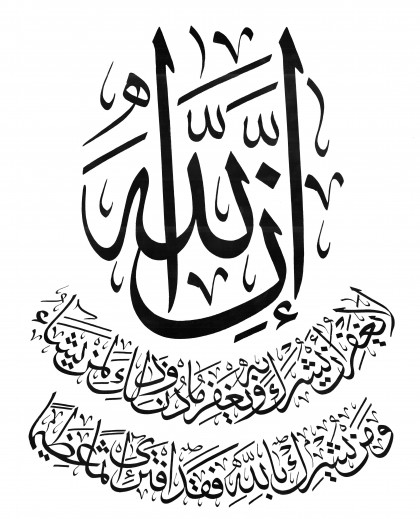 إِنَّ اللَّهَ
لَا يَغْفِرُ أَنْ يُشْرَكَ بِهِ وَيَغْفِرُ مَا دُونَ ذَٰلِكَ لِمَنْ يَشَاءُ
وَمَنْ يُشْرِكْ بِاللَّهِ فَقَدِ افْتَرَىٰ إِثْمًا عَظِيمًا